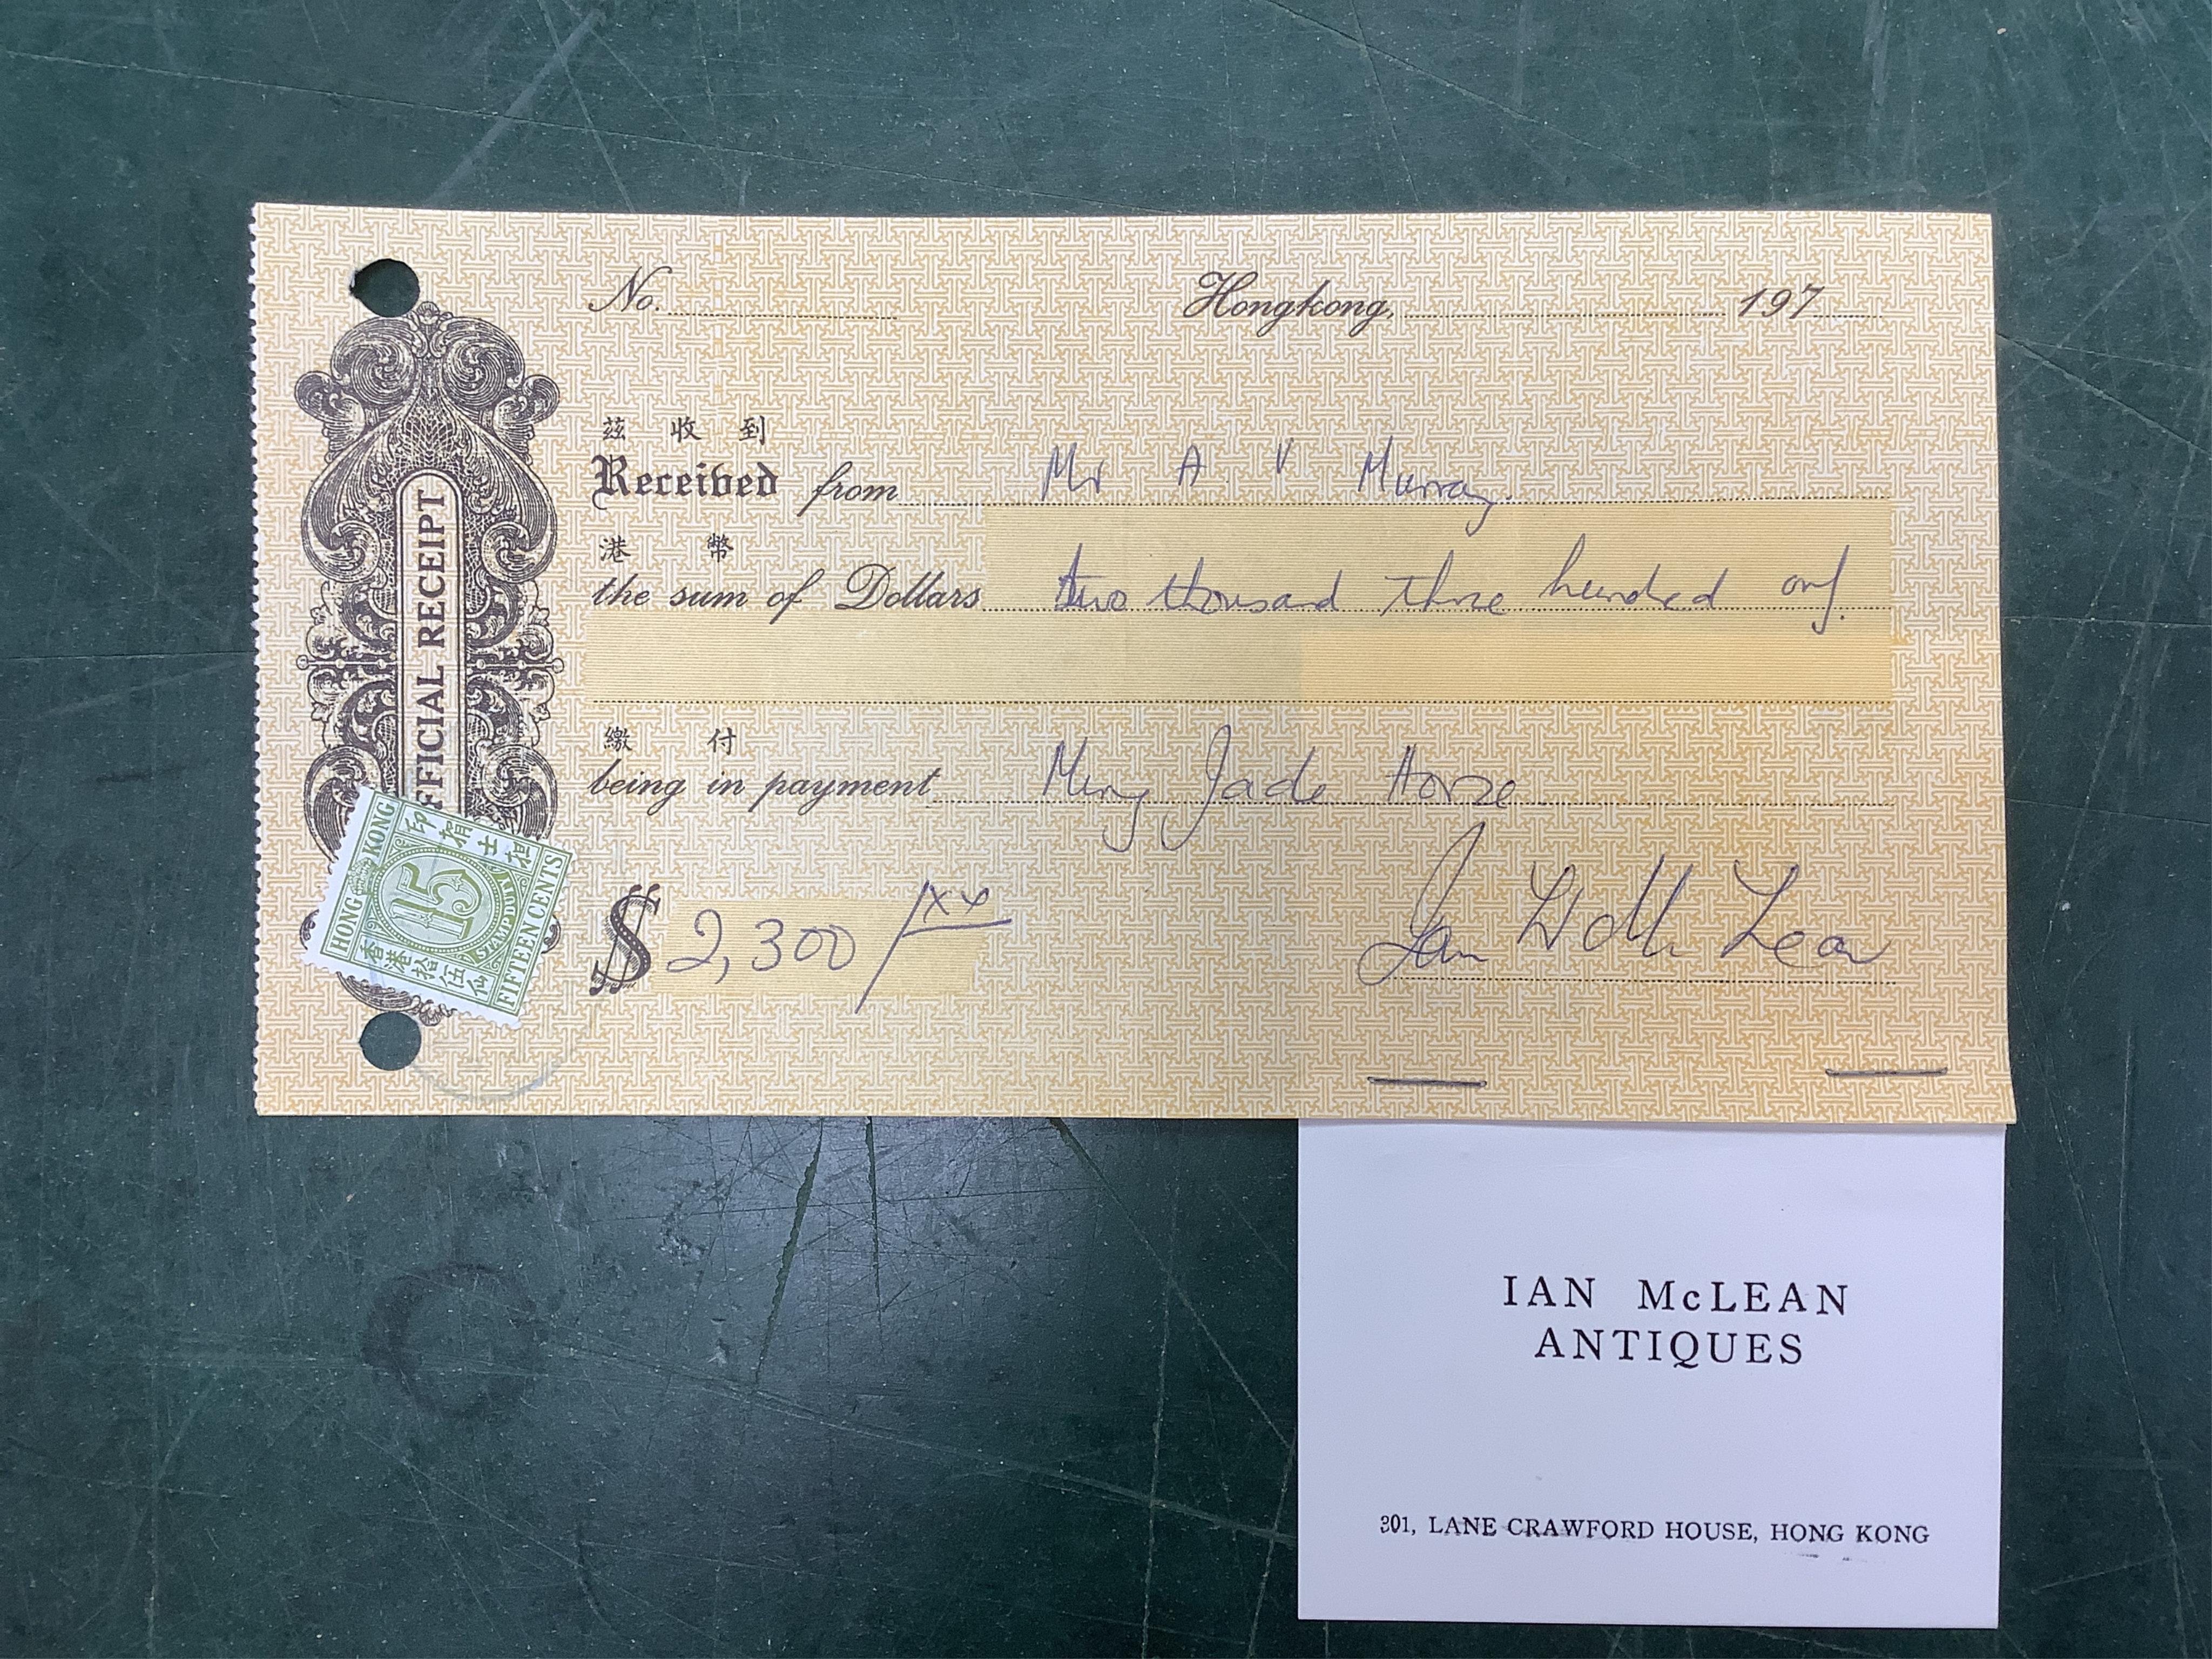 No.
Hongkong, 197
茲收到
Received from Mr A V Murray.
港幣
the sum of Dollars two thousand three hundred only.
繳付
being in payment Ming Jade Horse
$ 2,300/xx
Ian McLean
OFFICIAL RECEIPT
HONG KONG
印花士担
15
STAMP DUTY
FIFTEEN CENTS
香港拾伍仙
IAN McLEAN
ANTIQUES
301, LANE CRAWFORD HOUSE, HONG KONG